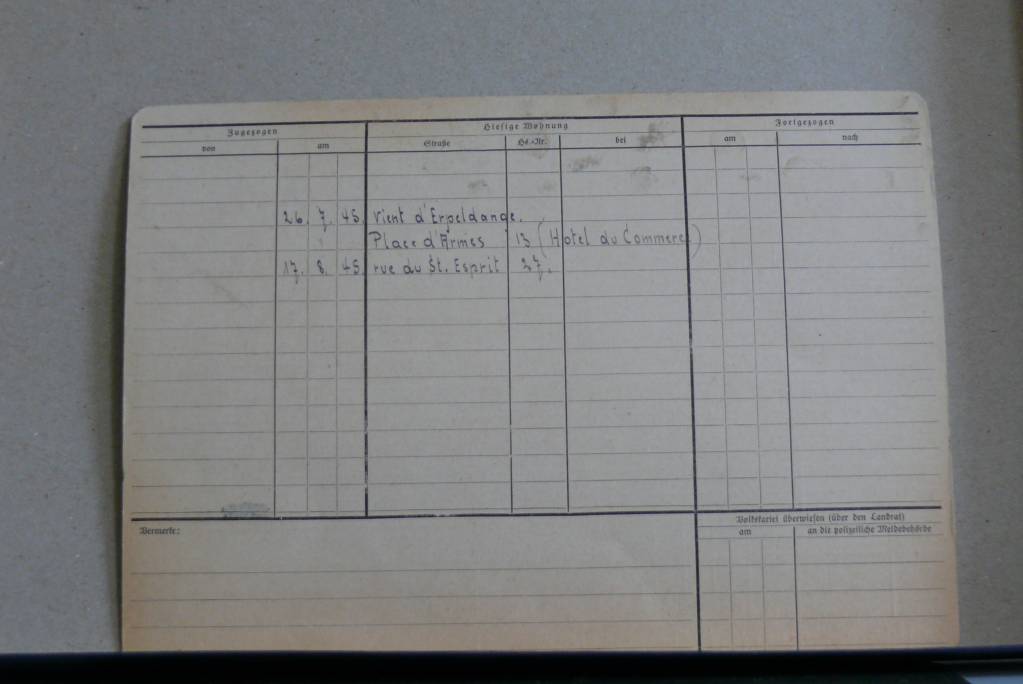 Zugezogen Hiesige Wohnung Fortgezogen
von am Straße Hs.-Nr. bei am nach
26. 7. 45. vient d'Erpeldange.
Place d'Armes 13 (Hotel du Commerce)
17. 8. 45. rue du St. Esprit 27.
Vermerke:
Volkskartei überwiesen (über den Landrat)
am an die polizeiliche Meldebehörde